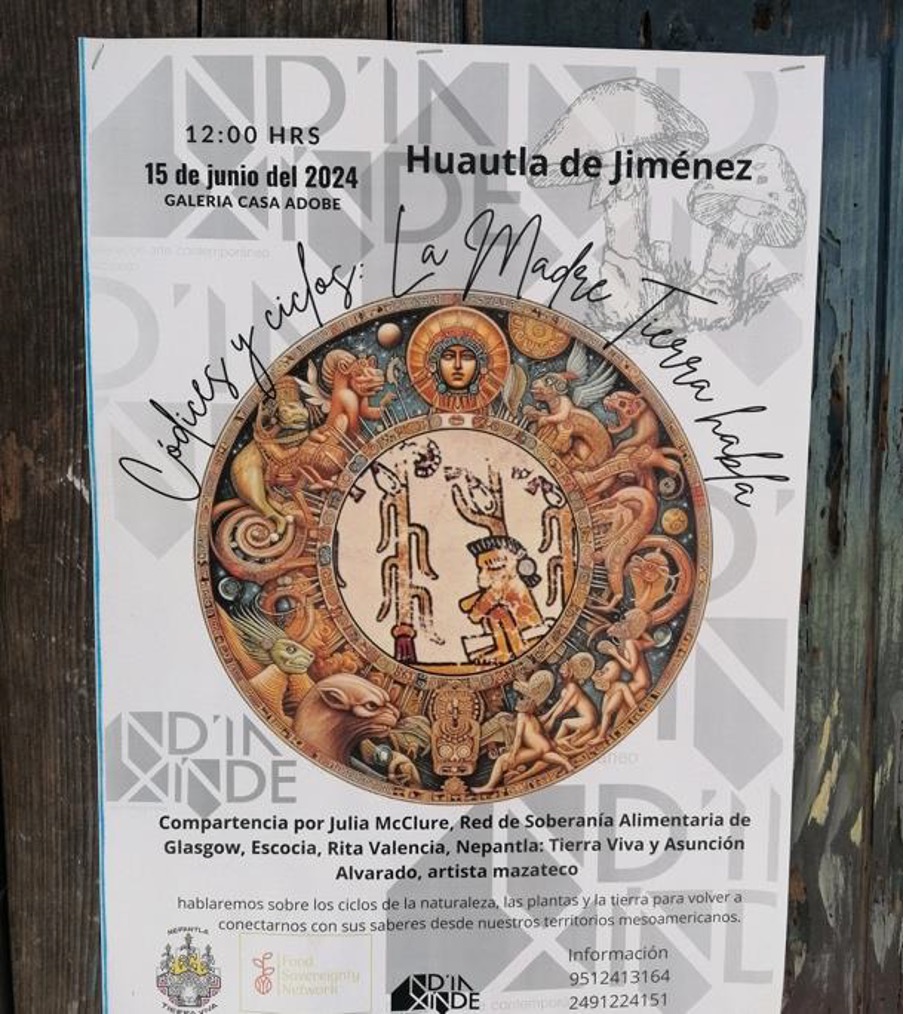 12:00 HRS
15 de junio del 2024
GALERIA CASA ADOBE
Huautla de Jiménez
Códices y ciclos: La Madre Tierra habla
ND'IN
XINDE
Compartencia por Julia McClure, Red de Soberanía Alimentaria de
Glasgow, Escocia, Rita Valencia, Nepantla: Tierra Viva y Asunción
Alvarado, artista mazateco
hablaremos sobre los ciclos de la naturaleza, las plantas y la tierra para volver a
conectarnos con sus saberes desde nuestros territorios mesoamericanos.
NEPANTLA
TIERRA VIVA
Food
Sovereignty
Network
ND'IN
XINDE
Información
9512413164
2491224151